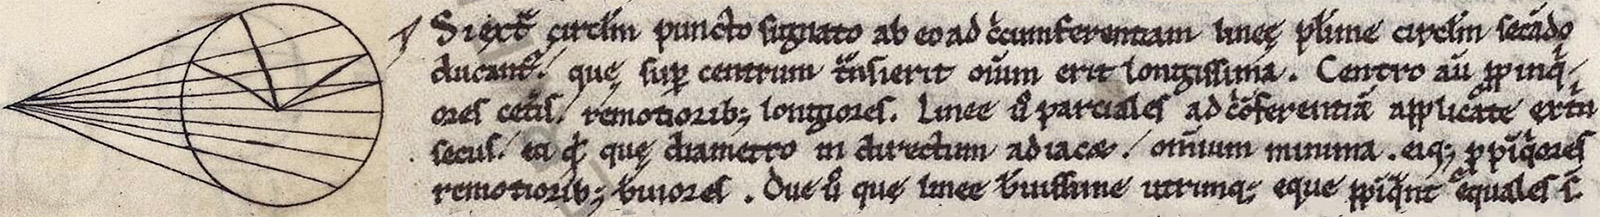 Si ext̄ circl̄m puncto signato ab eo ad c̄cumferentiam lineę pl̄ime circl̄m secādo
ducant᷑. quę sup̱ centrum t̄nsierit oīum erit longissima. Centro aū ꝓpinq̄-
ores cet̄is remotiorib; longiores. Linee ů parciales ad c̄c̄ferentiā applicate ext̄n
secus. ea qͥ quę diametro in directum adiacæ. om̄ium minima. eiq; ꝓpīq̄ores
remotiorib; b̄uiores. Due ů quę linee b̄uissime utrinq; eque ꝓpīq̄nt equales s̄.